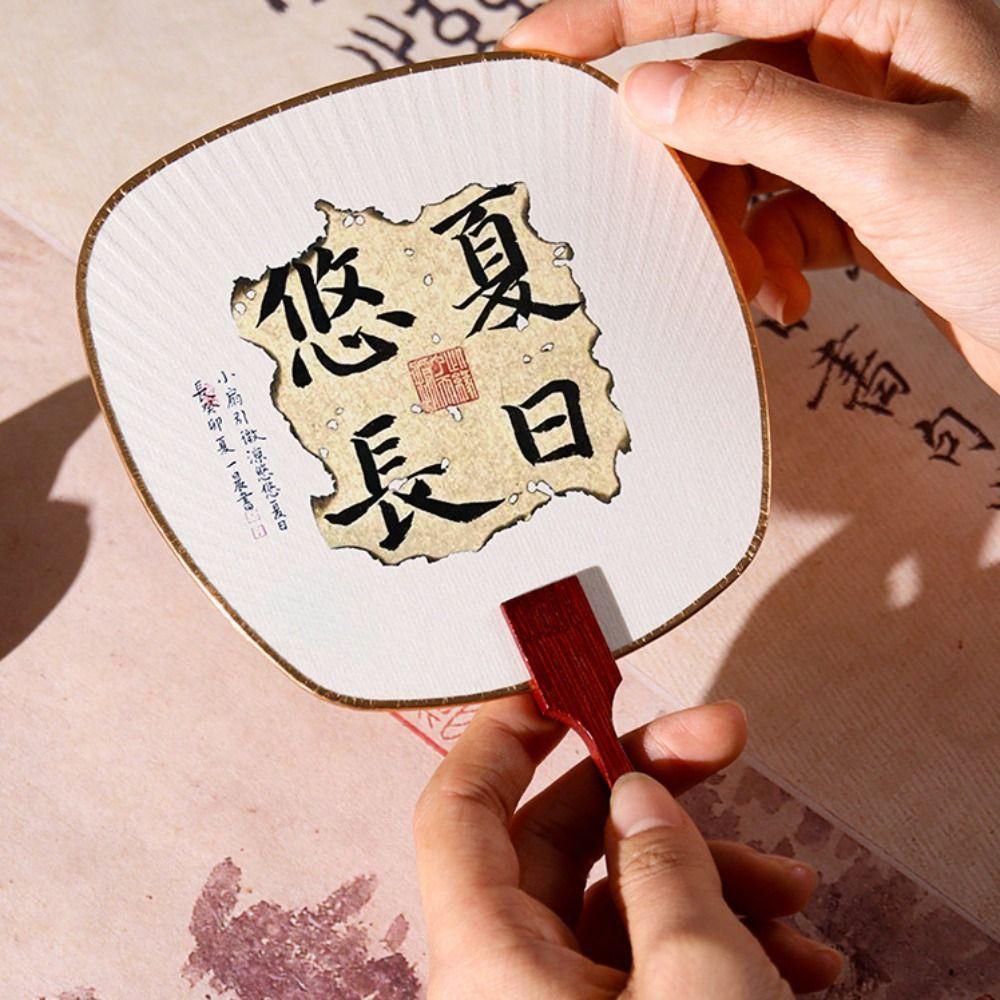 夏日
悠長
小扇引微涼悠悠夏日
長癸卯夏一日晨書
書向